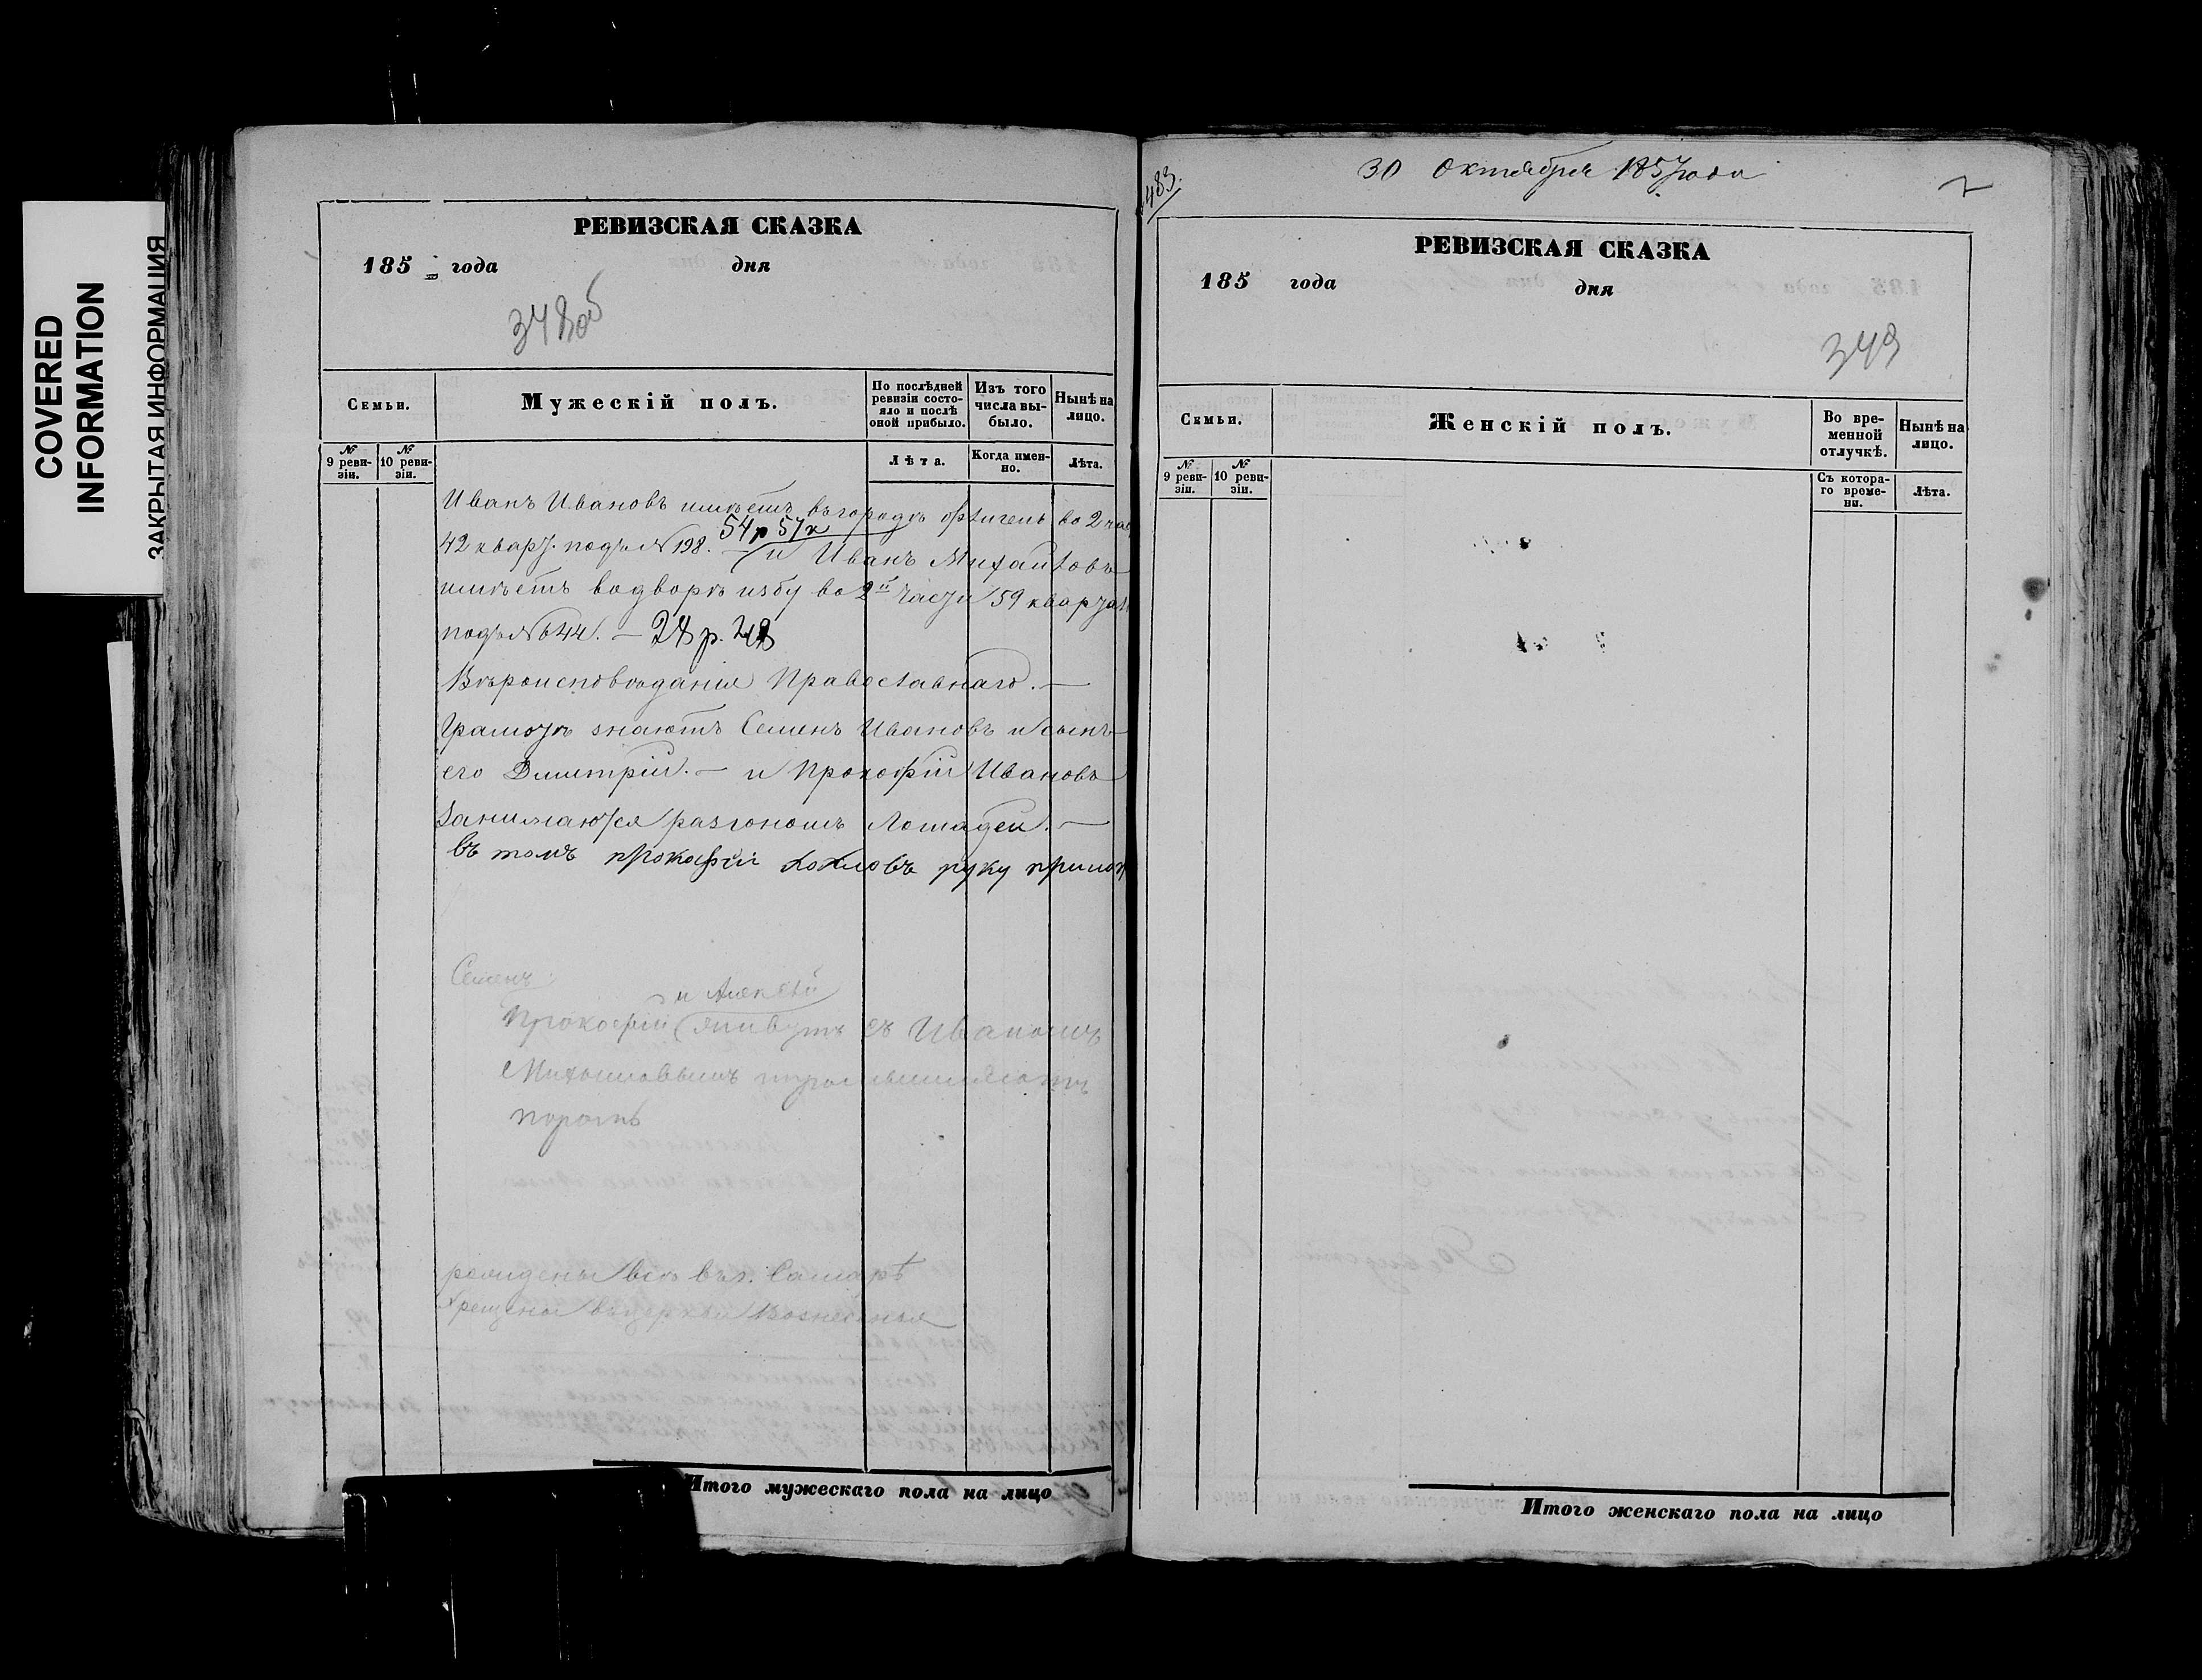 COVERED
INFORMATION
ЗАКРЫТАЯ ИНФОРМАЦИЯ
РЕВИЗСКАЯ СКАЗКА
185 года дня
348об
Семьи.
Мужескій полъ.
По послѣдней ревизіи состояло и послѣ оной прибыло.
Изъ того числа выбыло.
Нынѣ на лицо.
№ 9 ревизіи.
№ 10 ревизіи.
Лѣта.
Когда именно.
Лѣта.
Иванъ Ивановъ имѣетъ въ городѣ флигель во 2 час
54 р 57 к
42 кварт. подъ № 198. — и Иванъ Михайловъ
имѣетъ во дворѣ избу во 2й части 59 кварта
подъ № 644. — 28 р.
Вѣроисповѣданія Православнаго. —
Грамотѣ знаютъ Семенъ Ивановъ и сынъ
его Дмитрій. — и Прокофій Ивановъ
Занимаются разгономъ Лошадей. —
въ томъ прокофій хохловъ руку прилож
Семенъ
и Алексѣй
Прокофій живутъ съ Иваномъ
Михайловымъ
порознь
рождены всѣ въ г. Самарѣ
Крещены въ церкви Вознесенья
Итого мужескаго пола на лицо
483.
30 Октября 1857 года
РЕВИЗСКАЯ СКАЗКА
185 года дня
349
Семьи.
Женскій полъ.
Во временной отлучкѣ.
Нынѣ на лицо.
№ 9 ревизіи.
№ 10 ревизіи.
Съ котораго времени.
Лѣта.
Итого женскаго пола на лицо